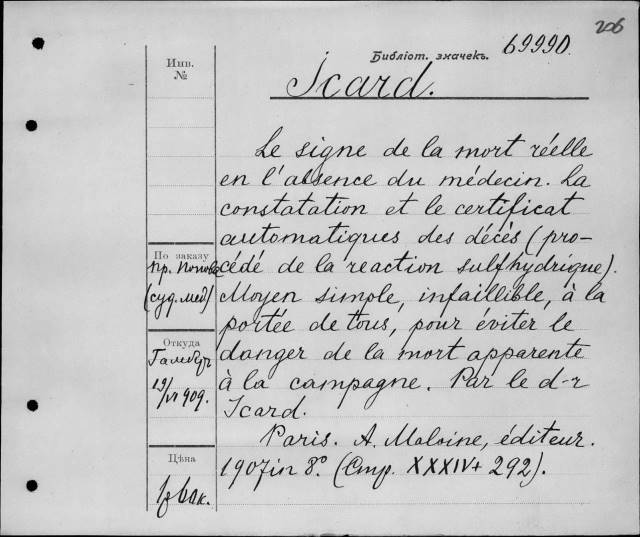 206
Библіот. значекъ. 69990.
Инв.
№
Icard.
Le signe de la mort réelle
en l'absence du médecin. La
constatation et le certificat
automatiques des décès (pro-
cédé de la reaction sulfhydrique).
Moyen simple, infaillible, à la
portée de tous, pour éviter le
danger de la mort apparente
à la campagne. Par le d-r
Icard.
Paris. A. Maloine, éditeur.
1907 in 8º. (Стр. XXXIV+292).
По заказу
пр. Попова
(суд. мед)
Откуда
19/VI 909.
Цѣна